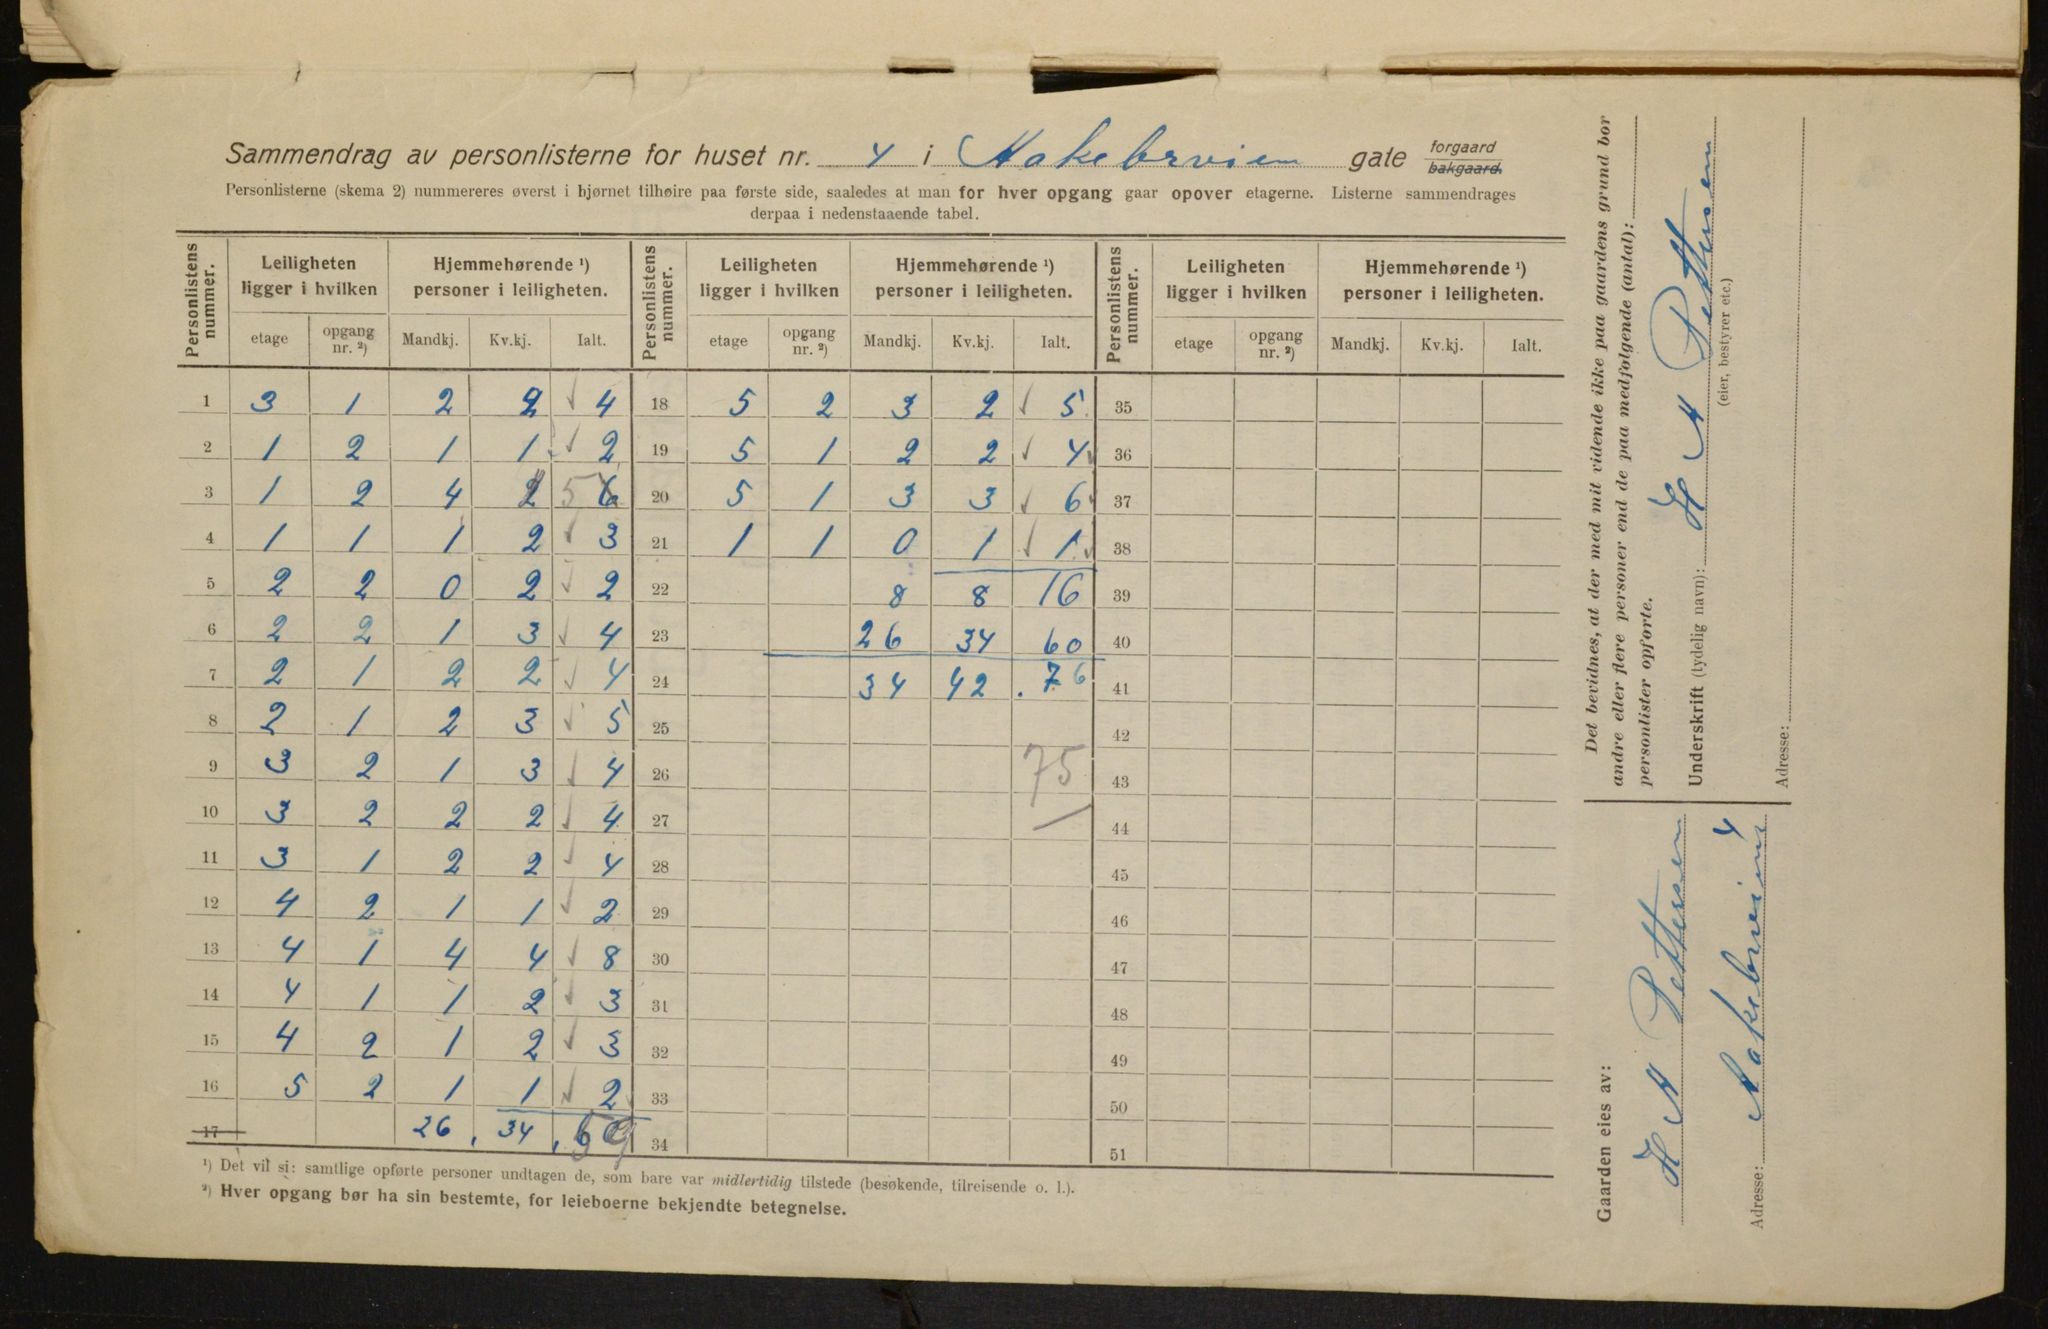 Sammendrag av personlisterne for huset nr. 4 i Aakebervien gate forgaard bakgaard.
Personlisterne (skema 2) nummereres øverst i hjørnet tilhøire paa første side, saaledes at man for hver opgang gaar opover etagerne. Listerne sammendrages
derpaa i nedenstaaende tabel.
Personlistens nummer. Leiligheten ligger i hvilken Hjemmehørende ¹) personer i leiligheten. Personlistens nummer. Leiligheten ligger i hvilken Hjemmehørende ¹) personer i leiligheten. Personlistens nummer. Leiligheten ligger i hvilken Hjemmehørende ¹) personer i leiligheten.
etage opgang nr. ²) Mandkj. Kv.kj. Ialt. etage opgang nr. ²) Mandkj. Kv.kj. Ialt. etage opgang nr. ²) Mandkj. Kv.kj. Ialt.
1 3 1 2 2 4 18 5 2 3 2 5 35
2 1 2 1 1 2 19 5 1 2 2 4 36
3 1 2 4 5 6 20 5 1 3 3 6 37
4 1 1 1 2 3 21 1 1 0 1 1 38
5 2 2 0 2 2 22 8 8 16 39
6 2 2 1 3 4 23 26 34 60 40
7 2 1 2 2 4 24 34 42 . 76 41
8 2 1 2 3 5 25 42
9 3 2 1 3 4 26 75 43
10 3 2 2 2 4 27 44
11 3 1 2 2 4 28 45
12 4 2 1 1 2 29 46
13 4 1 4 4 8 30 47
14 4 1 1 2 3 31 48
15 4 2 1 2 3 32 49
16 5 2 1 1 2 33 50
17 26 , 34 , 59 34 51
¹) Det vil si: samtlige opførte personer undtagen de, som bare var midlertidig tilstede (besøkende, tilreisende o. l.).
²) Hver opgang bør ha sin bestemte, for leieboerne bekjendte betegnelse.
Det bevidnes, at der med mit vidende ikke paa gaardens grund bor
andre eller flere personer end de paa medfølgende (antal):
personlister opførte.
Underskrift (tydelig navn): H A Pettersen
(eier, bestyrer etc.)
Adresse:
Gaarden eies av:
H A Pettersen
Adresse: Aakebrveien 4